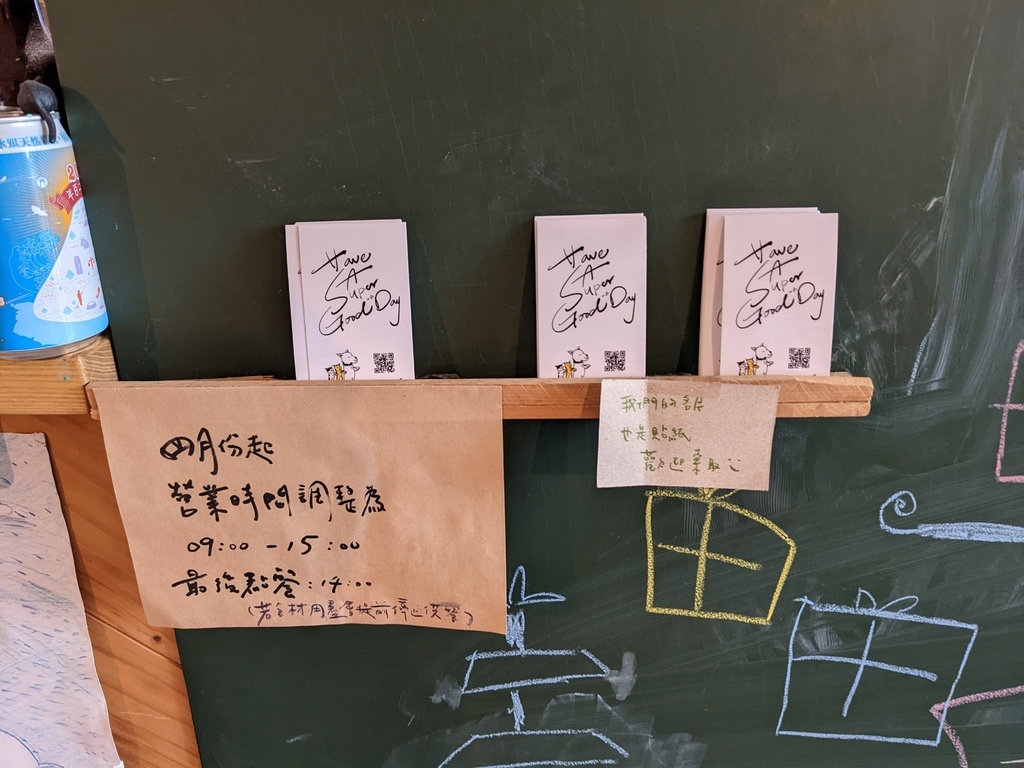 Have
A
Super
Good Day
Have
A
Super
Good Day
Have
A
Super
Good Day
四月份起
營業時間調整為
09:00 - 15:00
最後點餐：14:00
(若食材用盡會提前停止供餐)
我們的名片
也是貼紙
歡迎索取